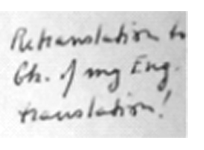 Retranslation to
Ch. of my Eng.
translation!